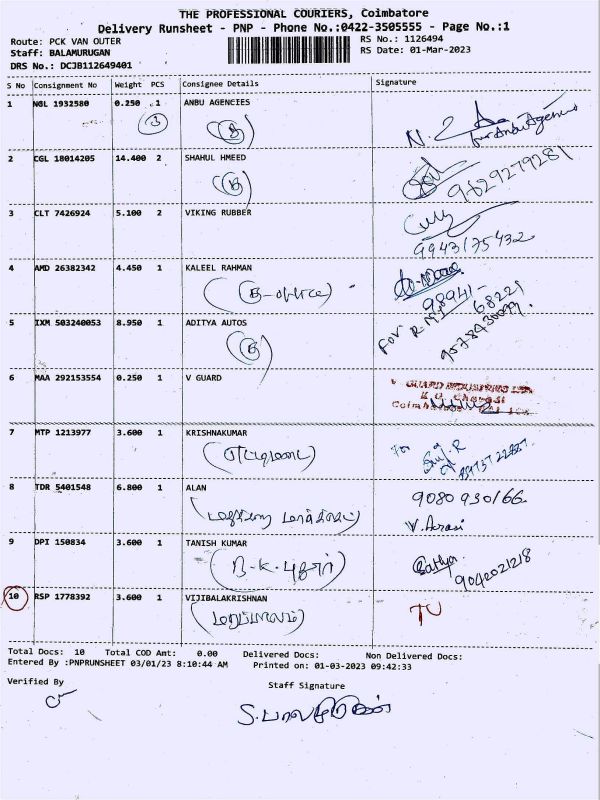 THE PROFESSIONAL COURIERS, Coimbatore
Delivery Runsheet - PNP - Phone No.:0422-3505555 - Page No.:1
Route: PCK VAN OUTER RS No.: 1126494
Staff: BALAMURUGAN RS Date: 01-Mar-2023
DRS No.: DCJB112649401
S No Consignment No Weight PCS Consignee Details Signature
1 NGL 1932580 0.250 1 ANBU AGENCIES
for Anbu Agencies
2 CGL 18014205 14.400 2 SHAHUL HMEED
9629279281
3 CLT 7426924 5.100 2 VIKING RUBBER
9943175432
4 AMD 26382342 4.450 1 KALEEL RAHMAN
98941-68221
5 IXM 503240053 8.950 1 ADITYA AUTOS
For R.M.
6 MAA 292153554 0.250 1 V GUARD
V GUARD INDUSTRIES LTD.
7 MTP 1213977 3.600 1 KRISHNAKUMAR
For
8 TDR 5401548 6.800 1 ALAN
9080930166
V. Arasi
9 DPI 150834 3.600 1 TANISH KUMAR
Sathya
9042021218
10 RSP 1778392 3.600 1 VIJIBALAKRISHNAN
Total Docs: 10 Total COD Amt: 0.00 Delivered Docs: Non Delivered Docs:
Entered By :PNPRUNSHEET 03/01/23 8:10:44 AM Printed on: 01-03-2023 09:42:33
Verified By Staff Signature
S. பாலமுருகன்